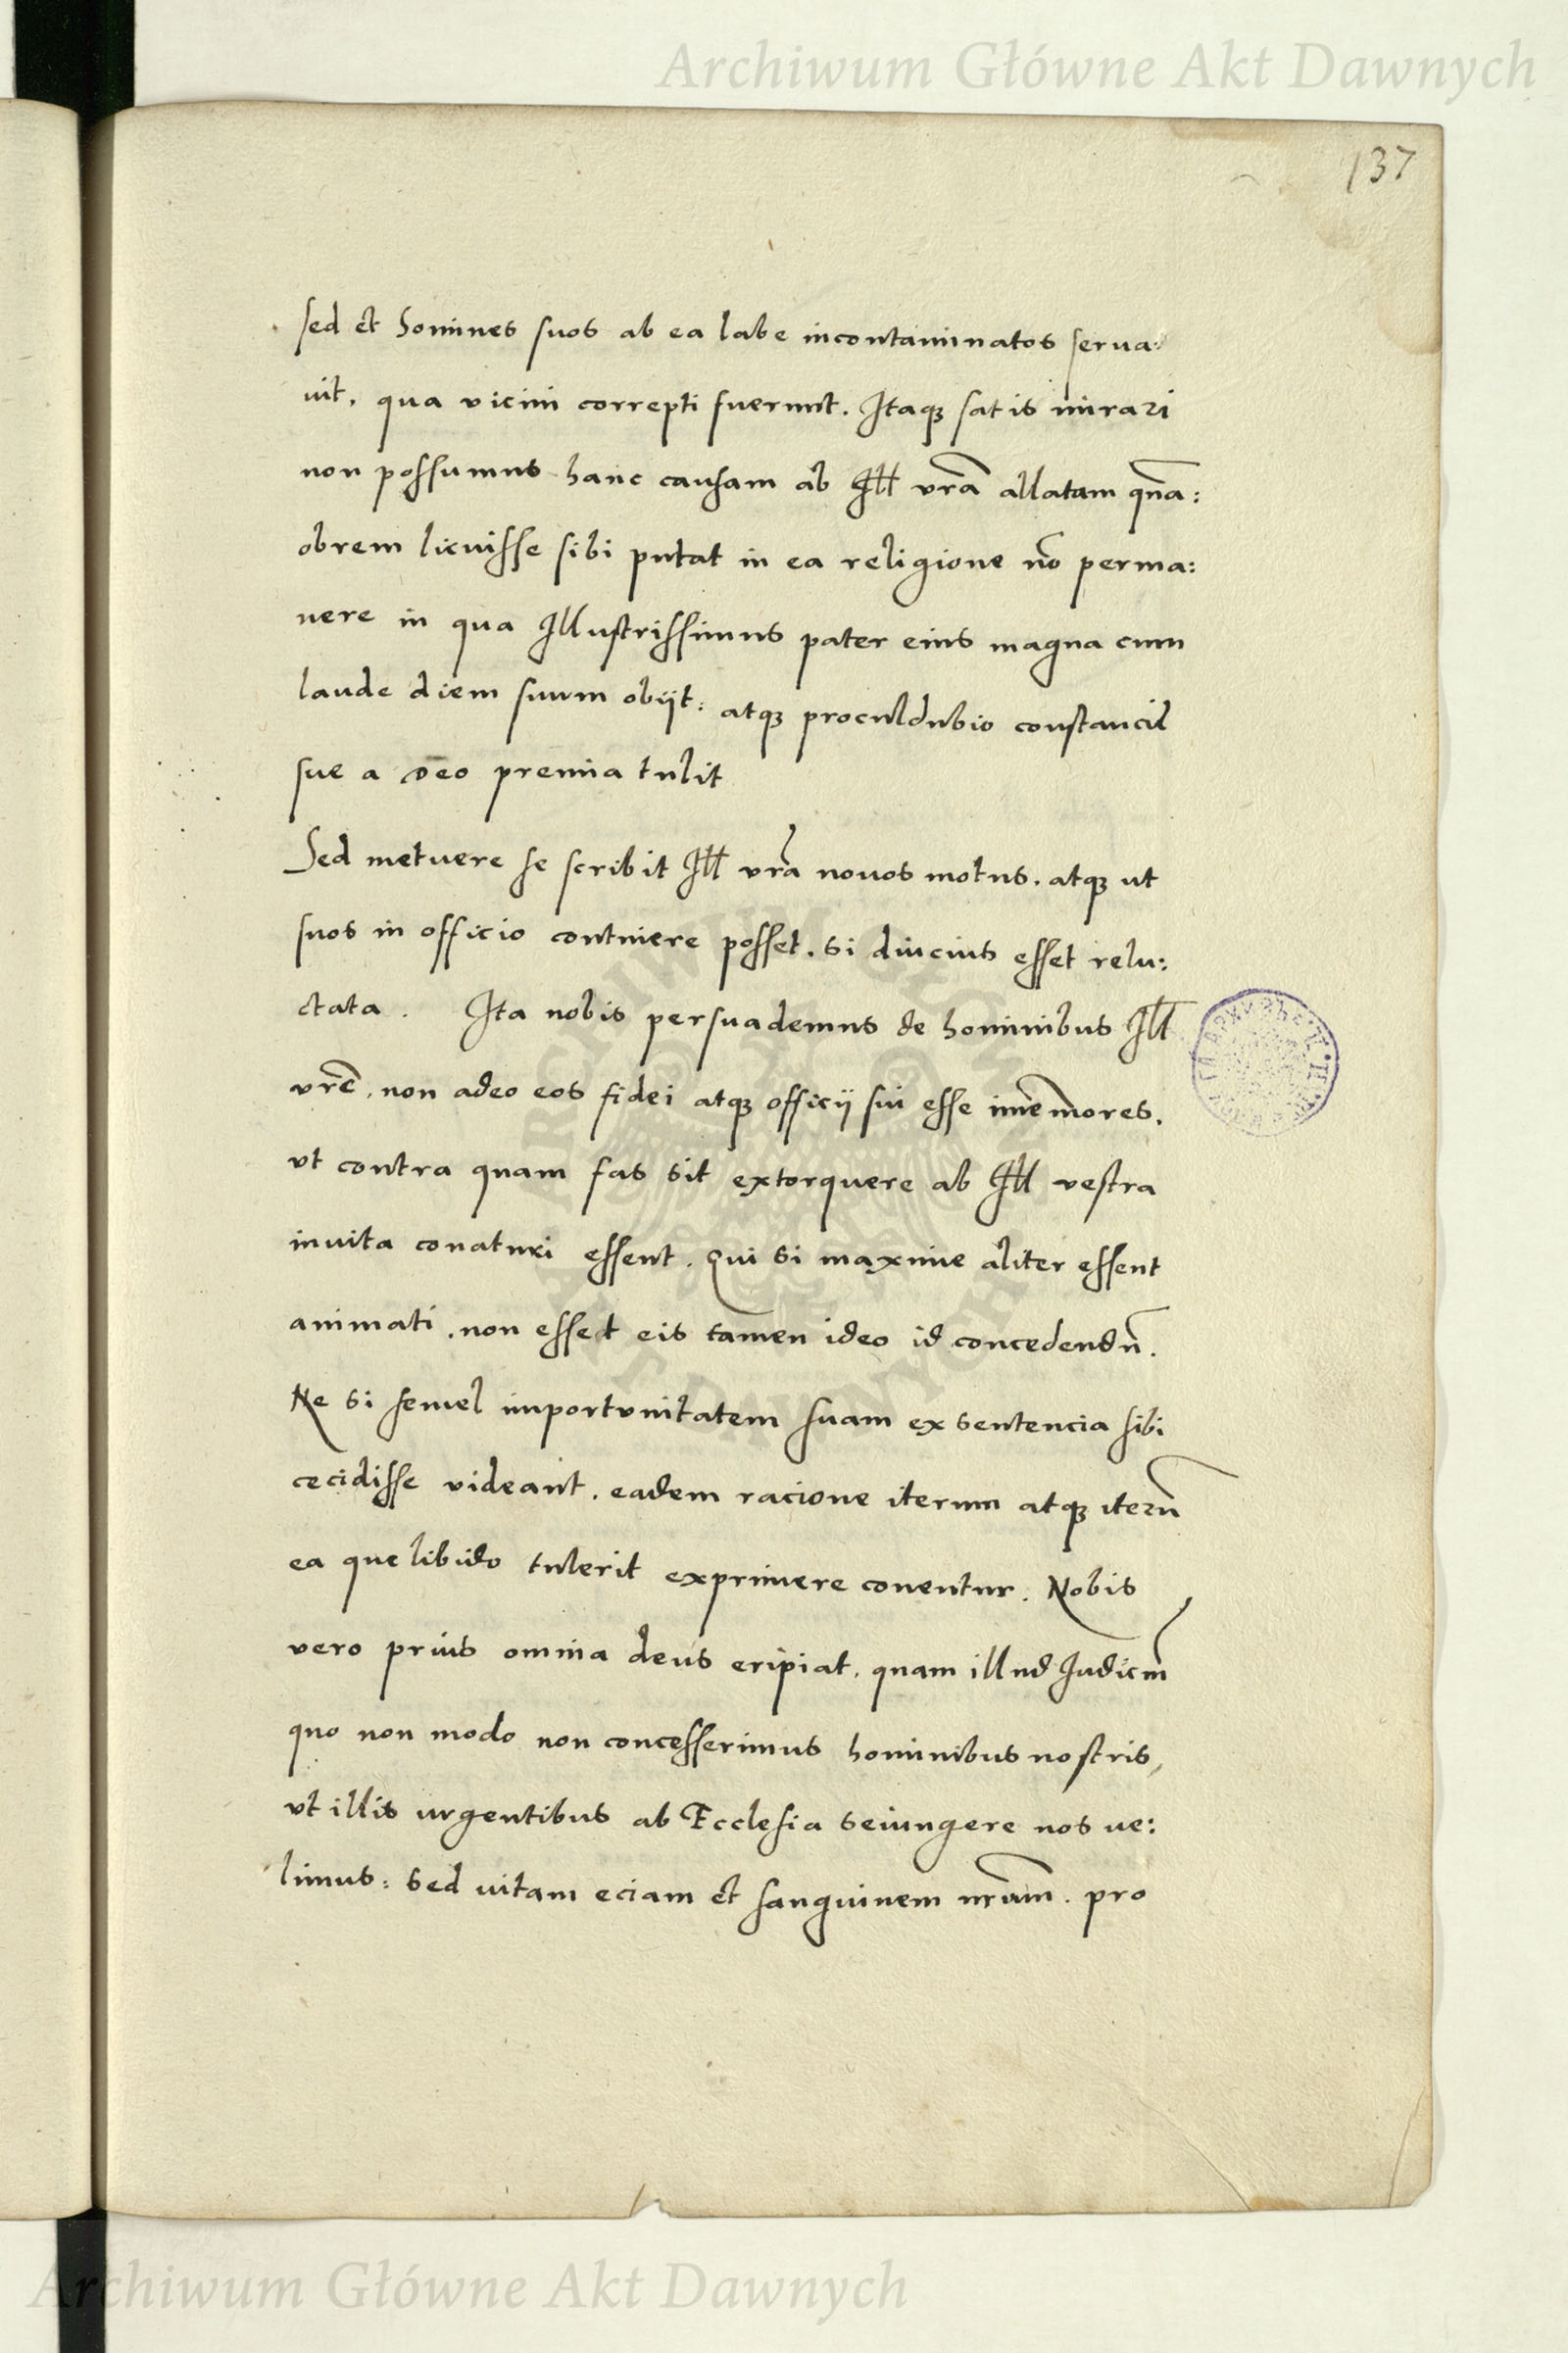 Archiwum Główne Akt Dawnych
137
sed et homines suos ab ea labe incontaminatos serua:
uit. qua vicini correpti fuerunt. Itaqꝫ satis mirari
non possumus hanc causam ab Ill vrã allatam qña:
obrem licuisse sibi putat in ea religione nõ perma:
nere in qua Illustrissimus pater eius magna cum
laude diem suum obijt: atqꝫ proculdubio constancie
sue a deo premia tulit
Sed metuere se scribit Ill vrã novos motus. atqꝫ ut
suos in officio continere posset. si diucius esset relu:
ctata. Ita nobis persuademus de hominibus Ill
vrẽ, non adeo eos fidei atqꝫ officij sui esse im̃emores.
vt contra quam fas sit extorquere ab Ill vestra
inuita conaturi essent. Qui si maxime aliter essent
animati. non esset eis tamen ideo id concedendũ.
Ne si semel importunitatem suam ex sentencia sibi
cecidisse videant. eadem racione iterum atqꝫ iterũ
ea que libido tulerit exprimere conentur. Nobis
vero prius omnia deus eripiat. quam illud Iudiciũ
quo non modo non concesserimus hominibus nostris,
vt illis urgentibus ab Ecclesia seiungere nos ue:
limus: sed uitam eciam et sanguinem nr̃um. pro
Archiwum Główne Akt Dawnych